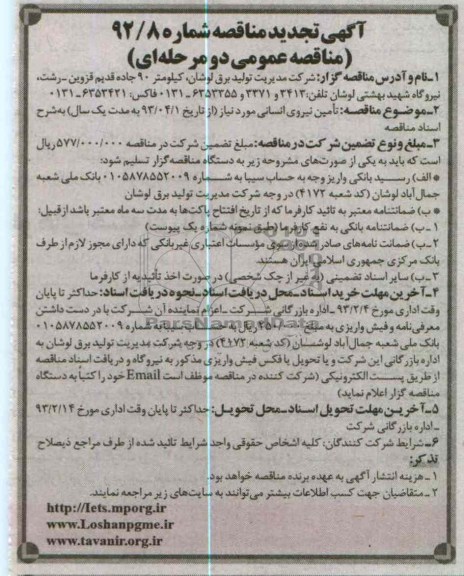 آگهی تجدید مناقصه شماره ۹۲/۸
(مناقصه عمومی دو مرحله‌ای)
۱ـ نام و آدرس مناقصه گزار: شرکت مدیریت تولید برق لوشان، کیلومتر ۹۰ جاده قدیم قزوین ـ رشت،
نیروگاه شهید بهشتی لوشان تلفن: ۳۴۱۳ و ۳۳۷۱ و ۶۳۵۳۳۵۵ ـ ۰۱۳۱ فاکس: ۶۳۵۳۴۲۱ ـ ۰۱۳۱
۲ـ موضوع مناقصه: تأمین نیروی انسانی مورد نیاز (از تاریخ ۹۳/۰۴/۱ به مدت یک سال) به‌شرح
اسناد مناقصه
۳ـ مبلغ و نوع تضمین شرکت در مناقصه: مبلغ تضمین شرکت در مناقصه ۵۷۷/۰۰۰/۰۰۰ ریال
است که باید به یکی از صورت‌های مشروحه زیر به دستگاه مناقصه گزار تسلیم شود:
* الف) رسید بانکی واریز وجه به حساب سیبا به شماره ۰۱۰۵۸۷۸۵۵۲۰۰۹ بانک ملی شعبه
جمال‌آباد لوشان (کد شعبه ۴۱۷۲) در وجه شرکت مدیریت تولید برق لوشان
* ب) ضمانتنامه معتبر به تائید کارفرما که از تاریخ افتتاح پاکت‌ها به مدت سه ماه معتبر باشد از قبیل:
۱ ـ ب) ضمانتنامه بانکی به نفع کارفرما (طبق نمونه شماره یک پیوست)
۲ ـ ب) ضمانت نامه‌های صادر شده از سوی مؤسسات اعتباری غیربانکی که دارای مجوز لازم از طرف
بانک مرکزی جمهوری اسلامی ایران هستند.
۳ ـ ب) سایر اسناد تضمینی (به غیر از چک شخصی) در صورت اخذ تأئیدیه از کارفرما
۴ـ آخرین مهلت خرید اسناد ـ محل دریافت اسناد ـ نحوه دریافت اسناد: حداکثر تا پایان
وقت اداری مورخ ۹۳/۲/۴ ـ اداره بازرگانی شرکت ـ اعزام نماینده آن شرکت با در دست داشتن
معرفی‌نامه و فیش واریزی به مبلغ ریال به حساب سیبا به شماره ۰۱۰۵۸۷۸۵۵۲۰۰۹
بانک ملی شعبه جمال آباد لوشان (کد شعبه ۴۱۷۲) در وجه شرکت مدیریت تولید برق لوشان به
اداره بازرگانی این شرکت و یا تحویل با فکس فیش واریزی مذکور به نیروگاه و دریافت اسناد مناقصه
از طریق پست الکترونیکی (شرکت کننده در مناقصه موظف است Email خود را کتباً به دستگاه
مناقصه گزار اعلام نماید)
۵ـ آخرین مهلت تحویل اسناد ـ محل تحویل: حداکثر تا پایان وقت اداری مورخ ۹۳/۲/۱۴
ـ اداره بازرگانی شرکت
۶ـ شرایط شرکت کنندگان: کلیه اشخاص حقوقی واجد شرایط تائید شده از طرف مراجع ذیصلاح
تذکر:
۱ ـ هزینه انتشار آگهی به عهده برنده مناقصه خواهد بود.
۲ ـ متقاضیان جهت کسب اطلاعات بیشتر می‌توانند به سایت‌های زیر مراجعه نمایند.
http://Iets.mporg.ir
www.Loshanpgme.ir
www.tavanir.org.ir